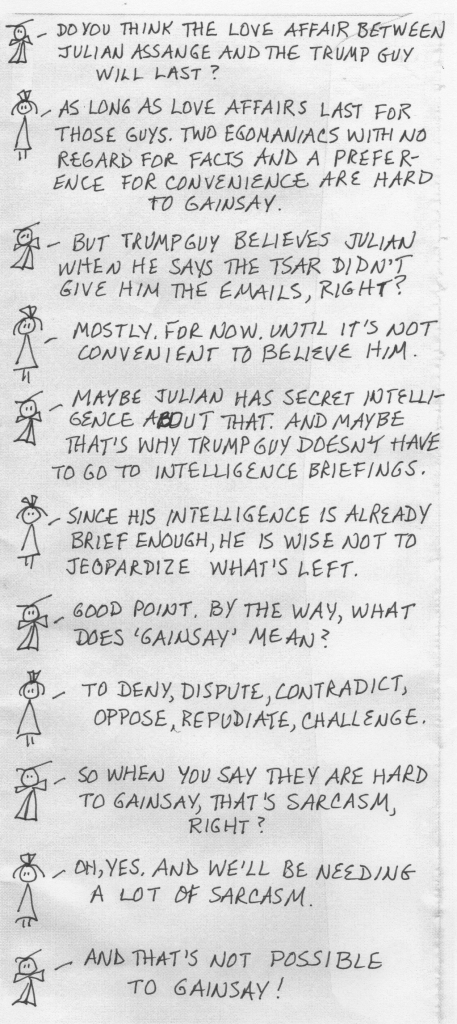 DO YOU THINK THE LOVE AFFAIR BETWEEN
JULIAN ASSANGE AND THE TRUMP GUY
WILL LAST?
AS LONG AS LOVE AFFAIRS LAST FOR
THOSE GUYS. TWO EGOMANIACS WITH NO
REGARD FOR FACTS AND A PREFER-
ENCE FOR CONVENIENCE ARE HARD
TO GAINSAY.
BUT TRUMPGUY BELIEVES JULIAN
WHEN HE SAYS THE TSAR DIDN'T
GIVE HIM THE EMAILS, RIGHT?
MOSTLY. FOR NOW. UNTIL IT'S NOT
CONVENIENT TO BELIEVE HIM.
MAYBE JULIAN HAS SECRET INTELLI-
GENCE ABOUT THAT. AND MAYBE
THAT'S WHY TRUMP GUY DOESN'T HAVE
TO GO TO INTELLIGENCE BRIEFINGS.
SINCE HIS INTELLIGENCE IS ALREADY
BRIEF ENOUGH, HE IS WISE NOT TO
JEOPARDIZE WHAT'S LEFT.
GOOD POINT. BY THE WAY, WHAT
DOES 'GAINSAY' MEAN?
TO DENY, DISPUTE, CONTRADICT,
OPPOSE, REPUDIATE, CHALLENGE.
SO WHEN YOU SAY THEY ARE HARD
TO GAINSAY, THAT'S SARCASM,
RIGHT?
OH, YES. AND WE'LL BE NEEDING
A LOT OF SARCASM.
AND THAT'S NOT POSSIBLE
TO GAINSAY!